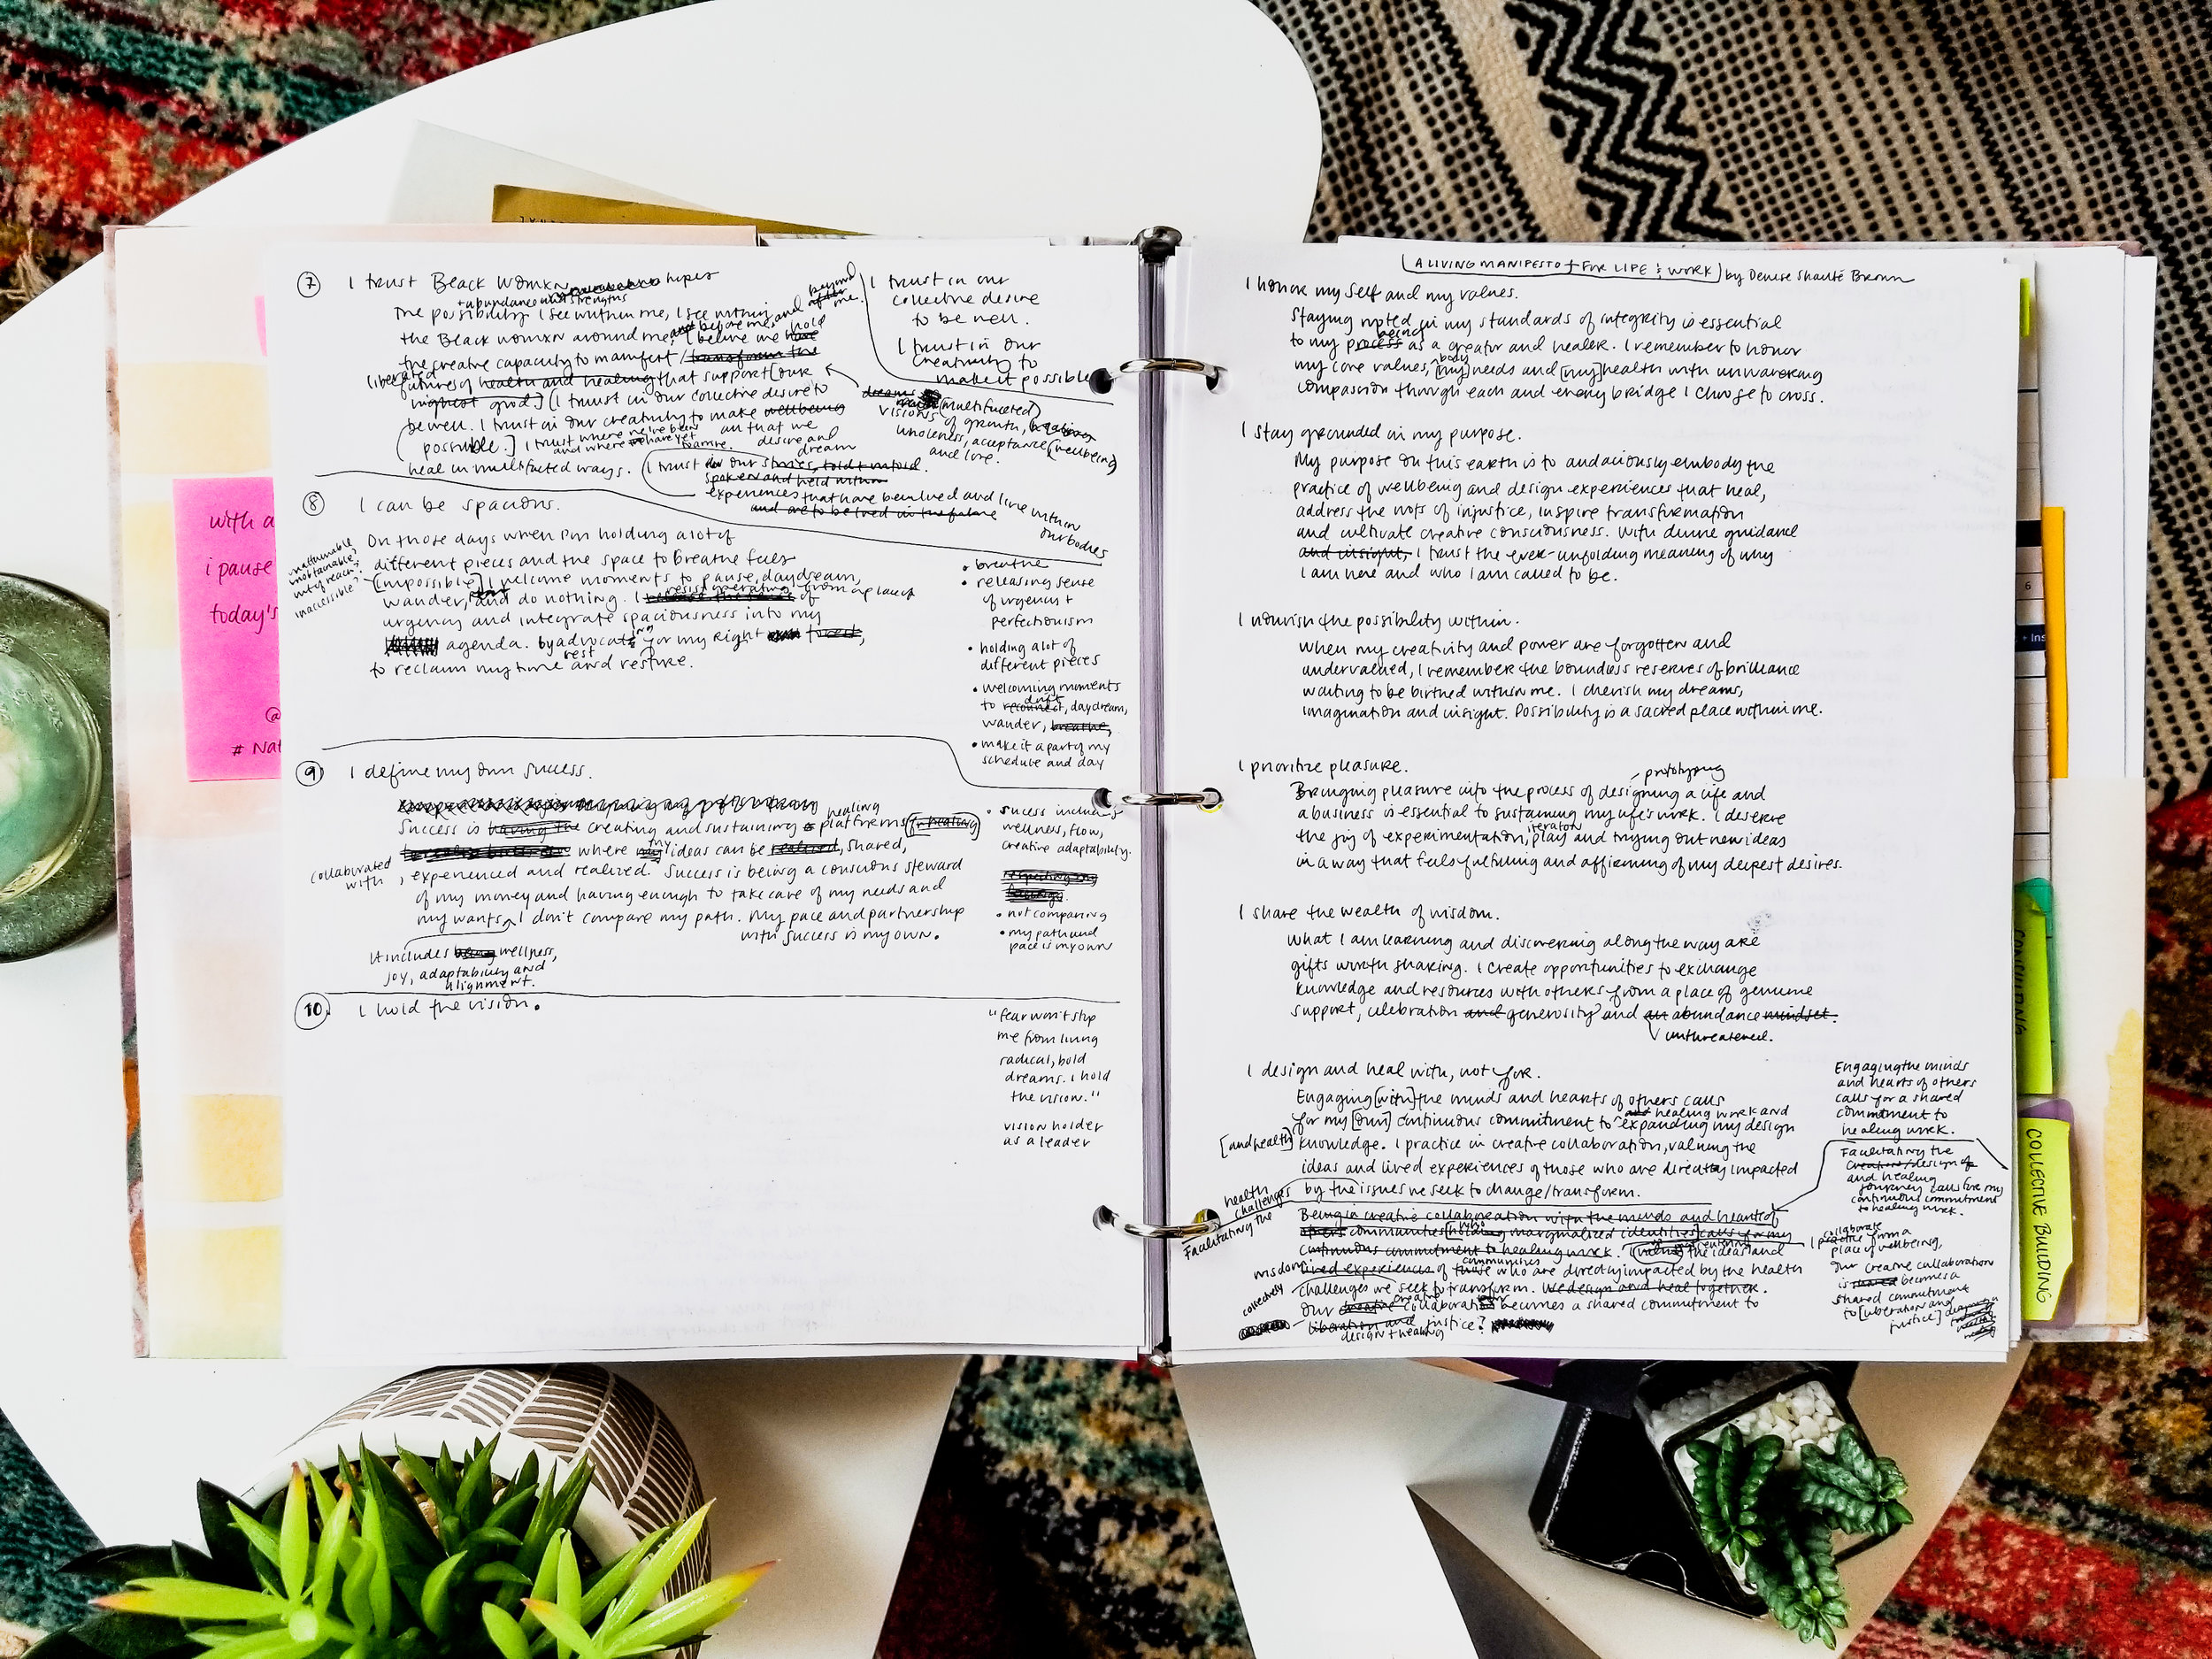 7 I trust Black womxn hopes
+ abundance and strengths
The possibility I see within me, I see within and beyond after me.
the Black womxn around me, and before me, I believe we hold have
the creative capacity to manifest / transform the
liberated futures of health and healing that support [our
highest good] (I trust in our collective desire to
be well. I trust in our creativity to make wellbeing
possible.] I trust where we've been all that we
and where we have yet desire and
dream
heal in multifaceted ways. I trust in our stories, told + untold.
spoken and held within
experiences that have been lived and live within
and are to be lived in the future our bodies
I trust in our
collective desire
to be well.
I trust in our
creativity to
make it possible
dreams
visions (multifaceted)
of growth, healing
wholeness, acceptance (wellbeing)
and love.
8 I can be spacious.
On those days when I'm holding a lot of
different pieces and the space to breathe feels
[impossible] I welcome moments to pause, daydream,
wander, and do nothing. I resist operating from a place of
urgency and integrate spaciousness into my
agenda. by advocating for my right forest,
to reclaim my time rest and restore.
unattainable
unobtainable?
out of reach?
inaccessible?
• breathe
• releasing sense
of urgency +
perfectionism
• holding a lot of
different pieces
• welcoming moments
drift
to reconnect, daydream,
wander, breathe,
• make it a part of my
schedule and day
9 I define my own success.
healing
Success is having the creating and sustaining platforms for healing
where my ideas can be realized, shared,
collaborated
with
, experienced and realized. Success is being a conscious steward
of my money and having enough to take care of my needs and
my wants. I don't compare my path. My pace and partnership
with success is my own.
It includes being wellness,
joy, adaptability and
alignment.
• success includes
wellness, flow,
creative adaptability.
• not comparing
• my path and
pace is my own
10. I hold the vision.
"fear won't stop
me from living
radical, bold
dreams. I hold
the vision."
vision holder
as a leader
with a
i pause
today's
@
# Nat
A LIVING MANIFESTO + FOR LIFE & WORK by Denise Shanté Brown
I honor my self and my values.
Staying rooted in my standards of integrity is essential
being
to my process as a creator and healer. I remember to honor
body
my core values, [my] needs and [my] health with unwavering
compassion through each and every bridge I choose to cross.
I stay grounded in my purpose.
My purpose on this earth is to audaciously embody the
practice of wellbeing and design experiences that heal,
address the roots of injustice, inspire transformation
and cultivate creative consciousness. With divine guidance
and insight, I trust the ever-unfolding meaning of why
I am here and who I am called to be.
I nourish the possibility within.
When my creativity and power are forgotten and
undervalued, I remember the boundless reserves of brilliance
waiting to be birthed within me. I cherish my dreams,
imagination and insight. Possibility is a sacred place within me.
I prioritize pleasure.
prototyping
Bringing pleasure into the process of designing a life and
a business is essential to sustaining my life's work. I deserve
iteration
the joy of experimentation, play and trying out new ideas
in a way that feels fulfilling and affirming of my deepest desires.
I share the wealth of wisdom.
What I am learning and discovering along the way are
gifts worth sharing. I create opportunities to exchange
knowledge and resources with others from a place of genuine
support, celebration and generosity and an abundance mindset.
unthreatened.
I design and heal with, not for.
Engaging [with] the minds and hearts of others calls
and healing work and
for my [own] continuous commitment to expanding my design
[and health] knowledge. I practice in creative collaboration, valuing the
ideas and lived experiences of those who are directly impacted
by the issues we seek to change/transform.
health
challenges
Facilitating the
Being in creative collaboration with the minds and hearts of
others communities holding marginalized identities calls for my
continuous commitment to healing work. the ideas and
wisdom lived experiences of those who are directly impacted by the health
communities
collectively challenges we seek to transform. We design and heal together.
our creative collaboration becomes a shared commitment to
liberation and justice?
design + healing
Engaging the minds
and hearts of others
calls for a shared
commitment to
healing work.
Facilitating the
creations/design of
and healing
journey calls for my
continuous commitment
to healing work.
collaborate
I practice from a
place of wellbeing,
our creative collaboration
is shared becomes a
shared commitment
to [liberation and
justice]
6
+ Ins
CONSULTING
COLLECTIVE BUILDING